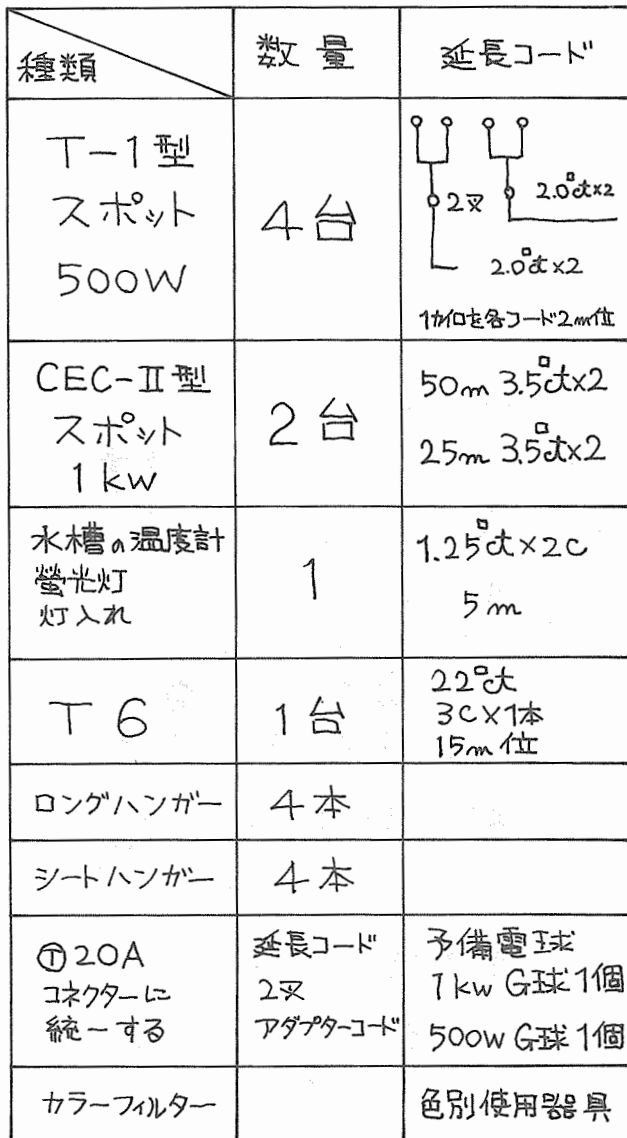 種類 数量 延長コード
T-1型
スポット
500W
4台
2叉 2.0□ct×2
2.0□ct×2
1カイロを各コード2m位
CEC-Ⅱ型
スポット
1kw
2台
50m 3.5□ct×2
25m 3.5□ct×2
水槽の温度計
螢光灯
灯入れ
1
1.25□ct×2C
5m
T6
1台
22□ct
3C×1本
15m位
ロングハンガー 4本
シートハンガー 4本
Ⓣ20A
コネクターに
統一する
延長コード
2叉
アダプターコード
予備電球
1kw G球1個
500w G球1個
カラーフィルター 色別使用器具